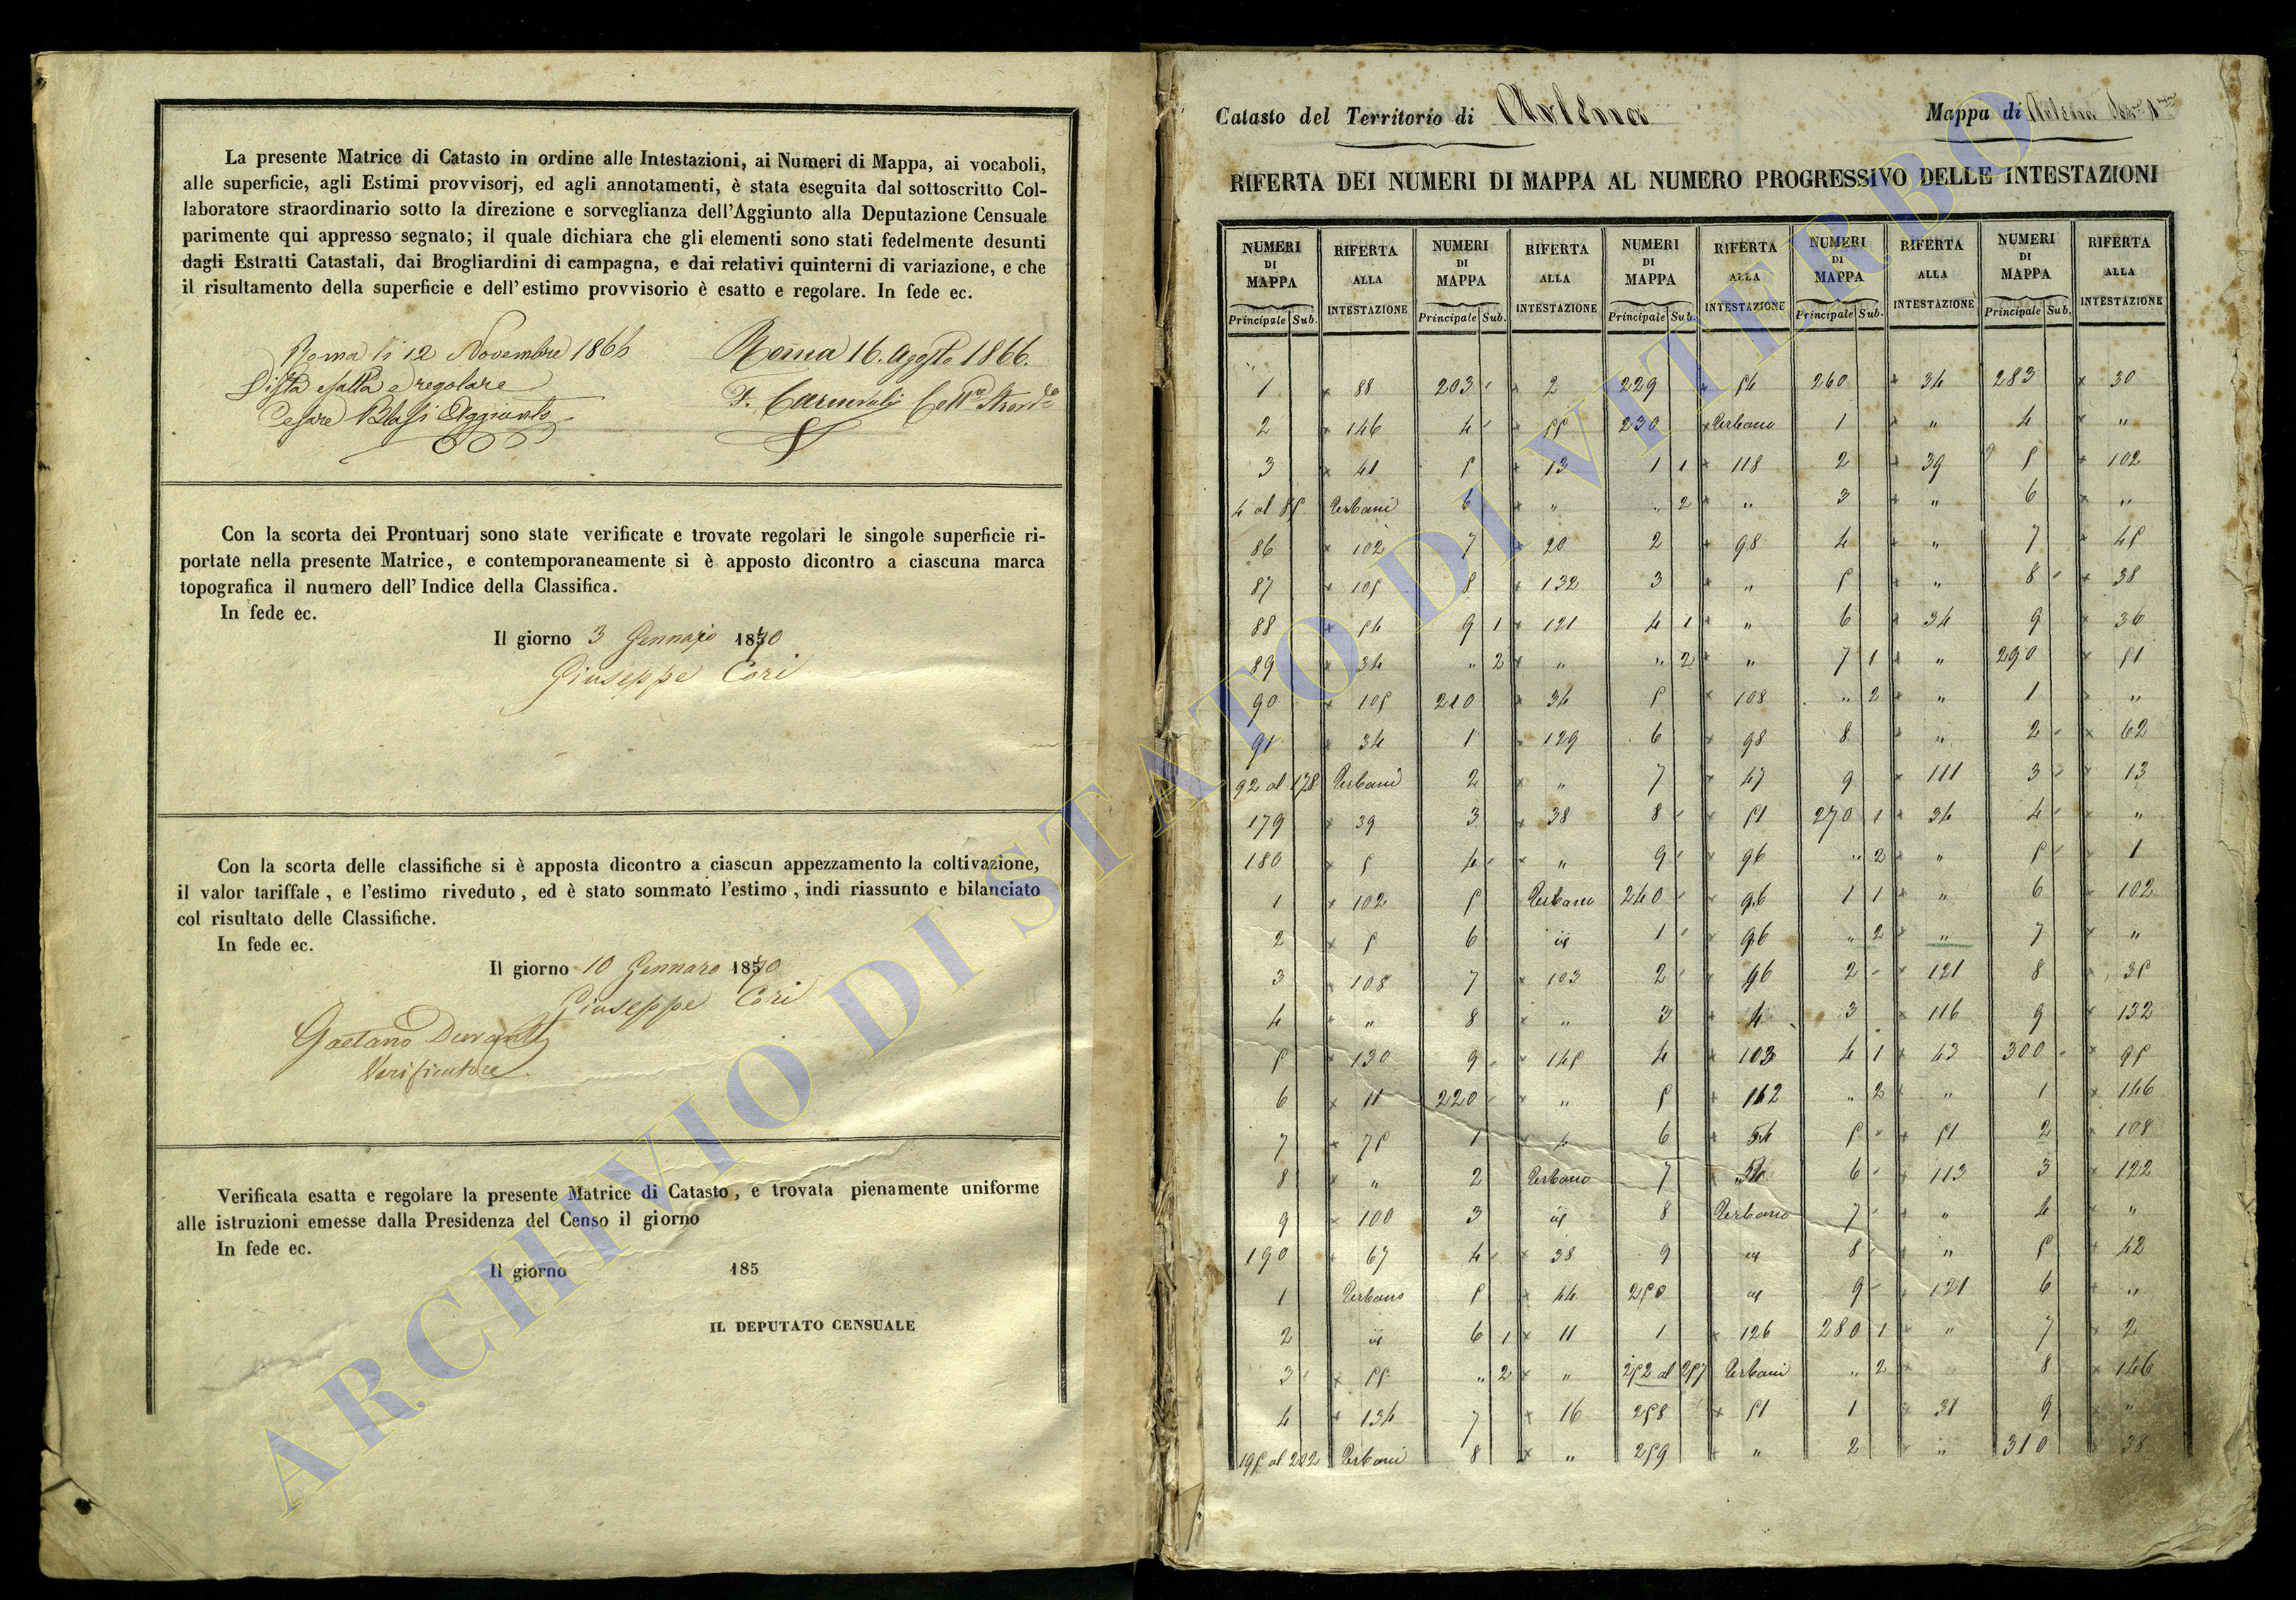 La presente Matrice di Catasto in ordine alle Intestazioni, ai Numeri di Mappa, ai vocaboli,
alle superficie, agli Estimi provvisorj, ed agli annotamenti, è stata eseguita dal sottoscritto Col-
laboratore straordinario sotto la direzione e sorveglianza dell'Aggiunto alla Deputazione Censuale
parimente qui appresso segnato; il quale dichiara che gli elementi sono stati fedelmente desunti
dagli Estratti Catastali, dai Brogliardini di campagna, e dai relativi quinterni di variazione, e che
il risultamento della superficie e dell'estimo provvisorio è esatto e regolare. In fede ec.
Roma li 12 Novembre 1866 Roma 16. Agosto 1866.
Vista esatta e regolare
Cesare Blasi Aggiunto
Con la scorta dei Prontuarj sono state verificate e trovate regolari le singole superficie ri-
portate nella presente Matrice, e contemporaneamente si è apposto dicontro a ciascuna marca
topografica il numero dell'Indice della Classifica.
In fede ec.
Il giorno 3 Gennajo 1870
Giuseppe Cori
Con la scorta delle classifiche si è apposta dicontro a ciascun appezzamento la coltivazione,
il valor tariffale, e l'estimo riveduto, ed è stato sommato l'estimo, indi riassunto e bilanciato
col risultato delle Classifiche.
In fede ec.
Il giorno 10 Gennaro 1870
Giuseppe Cori
Gaetano Duranti
Verificatore
Verificata esatta e regolare la presente Matrice di Catasto, e trovata pienamente uniforme
alle istruzioni emesse dalla Presidenza del Censo il giorno
In fede ec.
Il giorno 185
IL DEPUTATO CENSUALE
Catasto del Territorio di Arlena Mappa di Arlena
RIFERTA DEI NUMERI DI MAPPA AL NUMERO PROGRESSIVO DELLE INTESTAZIONI
NUMERI DI MAPPA RIFERTA ALLA INTESTAZIONE NUMERI DI MAPPA RIFERTA ALLA INTESTAZIONE NUMERI DI MAPPA RIFERTA ALLA INTESTAZIONE NUMERI DI MAPPA RIFERTA ALLA INTESTAZIONE NUMERI DI MAPPA RIFERTA ALLA INTESTAZIONE
Principale Sub. Principale Sub. Principale Sub. Principale Sub. Principale Sub.
1 88 203 2 229 54 260 34 283 30
2 146 4 55 230 Urbano 1 " 4 "
3 41 5 13 1 1 118 2 39 5 102
4 al 85 Urbani 6 " " 2 " 3 " 6 "
86 102 7 20 2 98 4 " 7 45
87 105 8 132 3 " 5 " 8 38
88 54 9 1 121 4 1 " 6 34 9 36
89 34 " 2 " " 2 " 7 1 " 290 51
90 105 210 34 5 108 " 2 " 1 "
91 34 1 129 6 98 8 " 2 62
92 al 178 Urbani 2 " 7 47 9 111 3 13
179 39 3 38 8 51 270 1 34 4 "
180 5 4 " 9 96 " 2 " 5 1
1 102 5 Urbano 240 96 1 1 " 6 102
2 5 6 id 1 96 " 2 " 7 "
3 108 7 103 2 96 2 121 8 35
4 " 8 " 3 4 3 116 9 132
5 130 9 145 4 103 4 1 43 300 95
6 11 220 " 5 112 " 2 " 1 146
7 75 1 4 6 54 5 51 2 108
8 " 2 Urbano 7 6 113 3 122
9 100 3 id 8 Urbano 7 " 4 "
190 67 4 38 9 id 8 " 5 42
1 Urbano 5 44 250 id 9 121 6 "
2 id 6 1 11 1 126 280 1 " 7 2
3 55 " 2 " 252 al 257 Urbani " 2 8 146
4 134 7 16 258 51 1 31 9 "
195 al 202 Urbani 8 " 259 " 2 " 310 38
ARCHIVIO DI STATO DI VITERBO